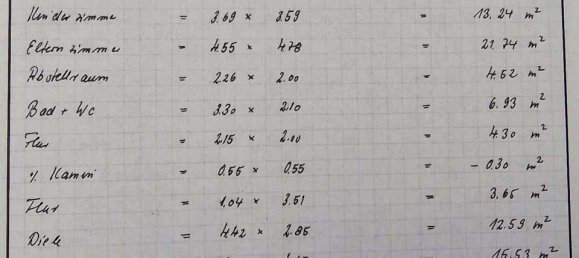 Kinderzimmer = 3.69 × 3.59 = 13.24 m²
Elternzimmer = 4.55 × 4.78 = 21.74 m²
Abstellraum = 2.26 × 2.00 = 4.52 m²
Bad + WC = 3.30 × 2.10 = 6.93 m²
Flur = 2.15 × 2.00 = 4.30 m²
% Kamin = 0.55 × 0.55 = - 0.30 m²
Flur = 1.04 × 3.51 = 3.65 m²
Diele = 4.42 × 2.85 = 12.59 m²
15.53 m²